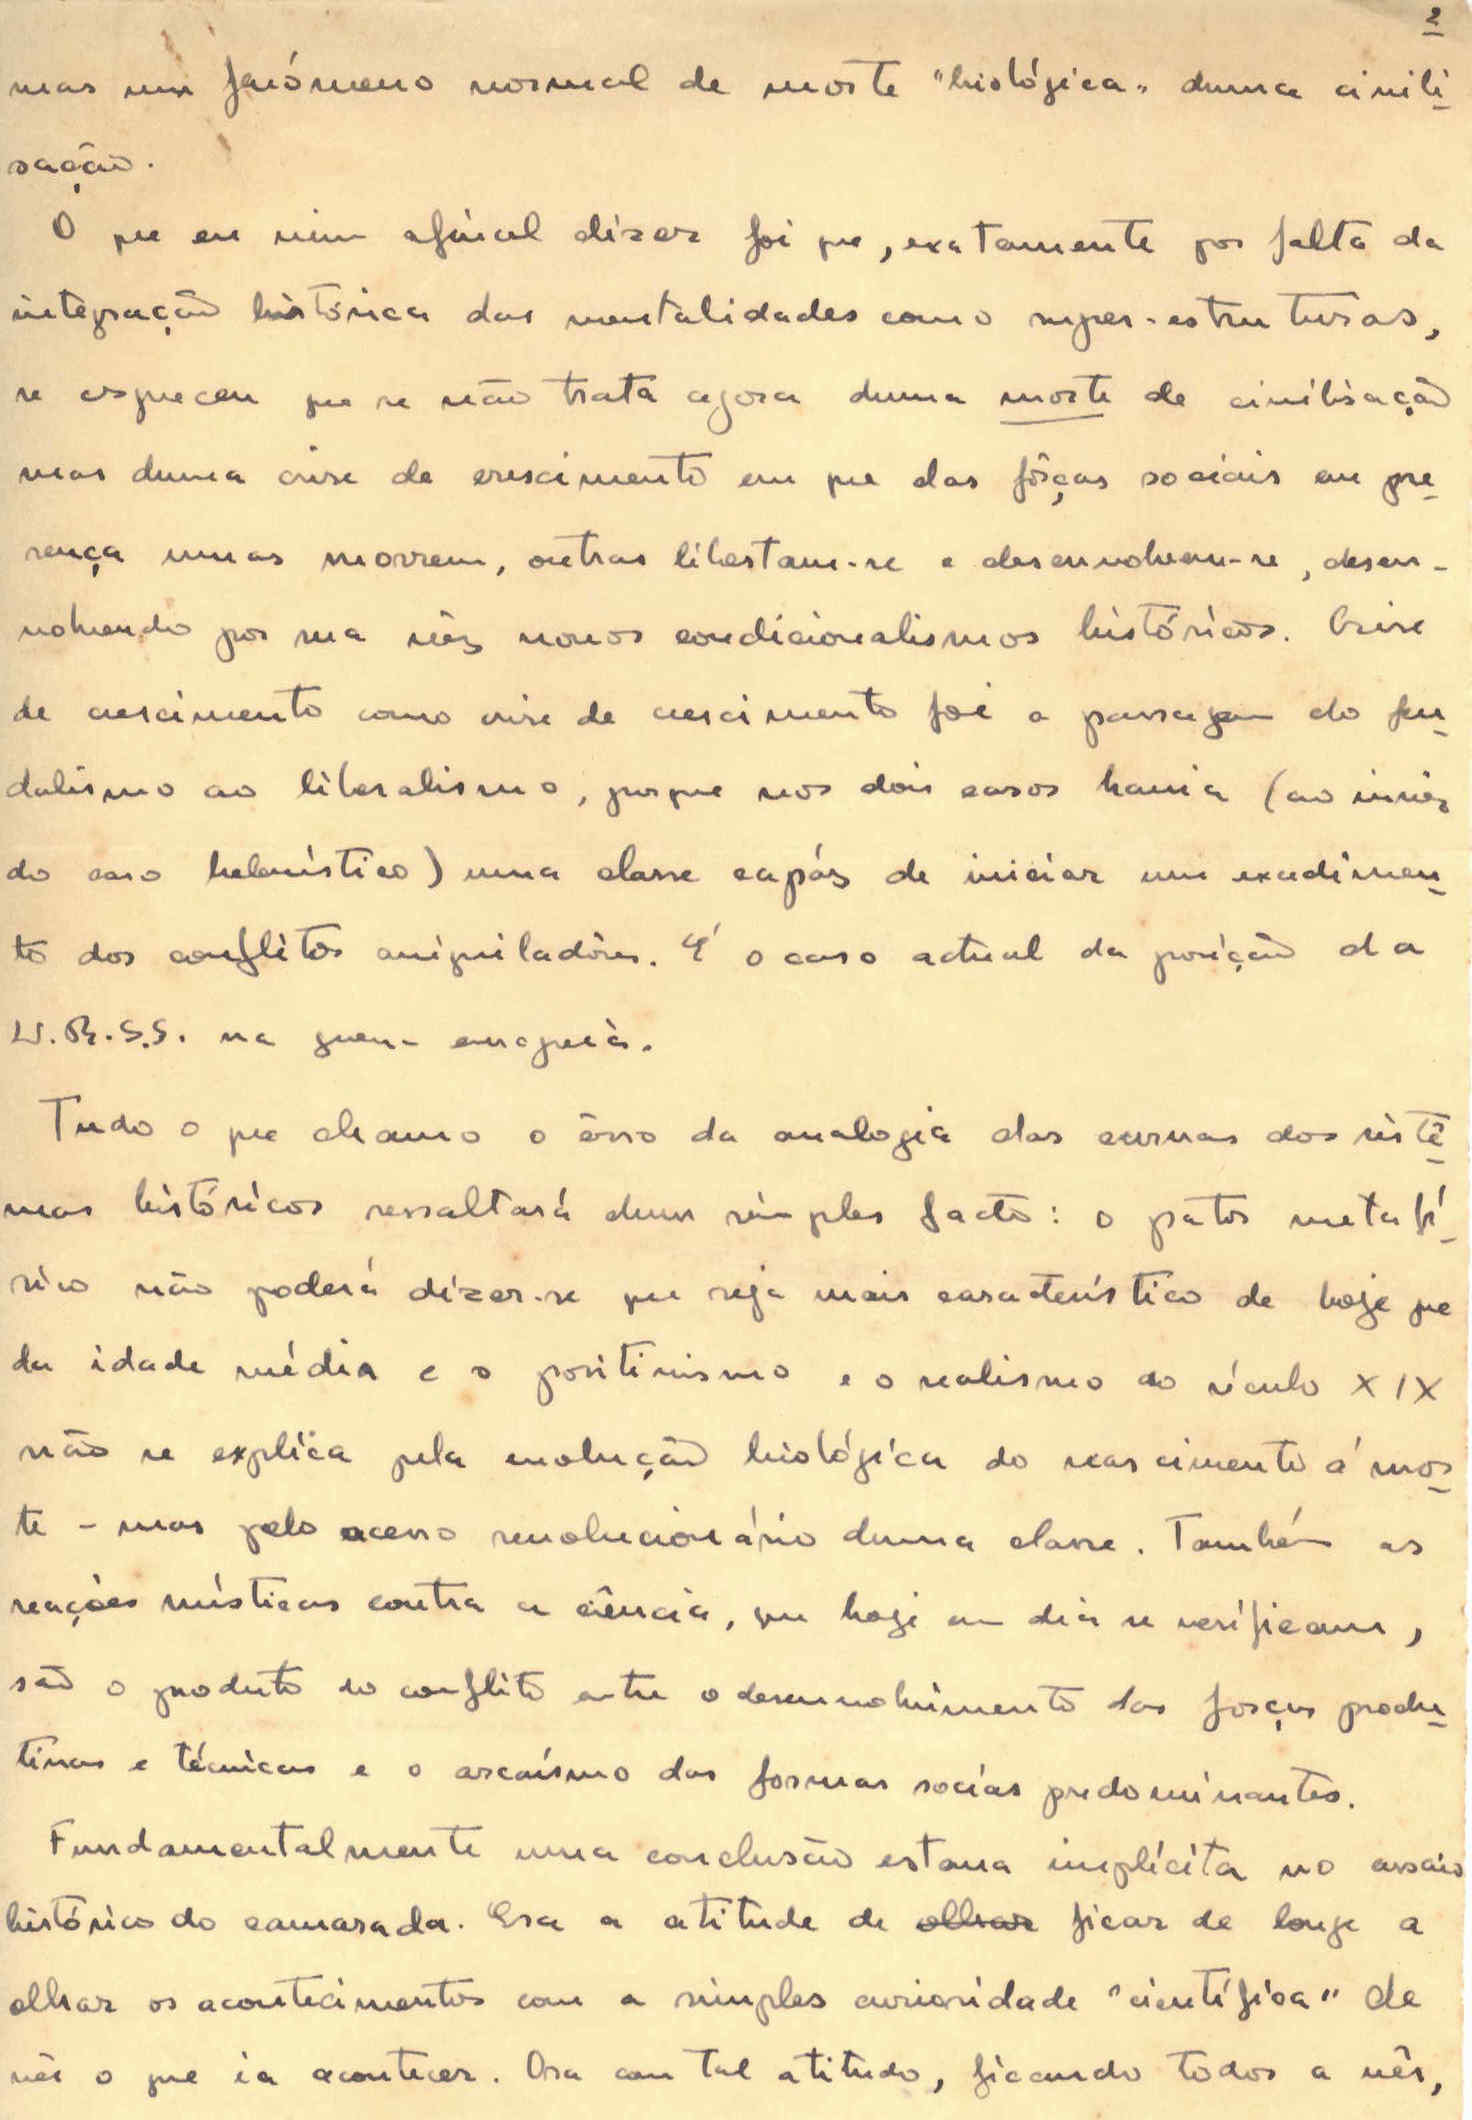 2
mas um fenómeno normal de morte "biológica" duma civili-
sação.
O que eu vim afinal dizer foi que, exatamente por falta da
integração histórica das mentalidades como super-estruturas,
se esqueceu que se não trata agora duma morte de civilisação
mas duma crise de crescimento em que das fôrças sociais em pre-
sença umas morrem, outras libertam-se e desenvolvem-se, desen-
volvendo por sua vêz novos condicionalismos históricos. Crise
de crescimento como crise de crescimento foi a passagem do feu-
dalismo ao liberalismo, porque nos dois casos havia (ao invéz
do caso helenístico) uma classe capáz de iniciar um
to dos conflitos aniquiladôres. É o caso actual da posição da
U.R.S.S. na guerra europeia.
Tudo o que chamo o êrro da analogia das curvas dos sistê-
mas históricos ressaltará dum simples facto: o patos metafí-
sico não poderá dizer-se que seja mais característico de hoje que
da idade média e o positivismo e o realismo do século XIX
não se explica pela evolução biológica do nascimento á mor-
te - mas pelo acesso revolucionário duma classe. Também as
reações místicas contra a ciência, que hoje em dia se verificam,
são o produto do conflito entre o desenvolvimento das forças produ-
tivas e técnicas e o arcaísmo das formas socías predominantes.
Fundamentalmente uma conclusão estava implícita no ensaio
histórico do camarada. Era a atitude de olhar ficar de longe a
olhar os acontecimentos com a simples curiosidade "científica" de
vêr o que ia acontecer. Ora com tal atitude, ficando todos a vêr,